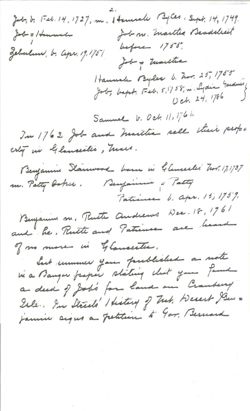 2.
Job, b. Feb. 14, 1727, m. Hannah Byles, Sept. 14, 1749
Job & Hannah Job m. Martha Bradstreet
Zebulun b. Apr. 17, 1751 before 1755.
Job & Martha
Hannah Byles b. Nov. 25, 1755
Job, bapt. Feb. 5, 1758, m. Lydia
Oct. 24, 1786
Samuel b. Oct. 11, 1761
In 1762 Job and Martha sell their prop-
erty in Gloucester, Mass.
Benjamin Stanwood born in Gloucester Nov. 17, 1727
m. Patty Baker. Benjamin & Patty
Patience b. Apr. 15, 1759.
Benjamin m. Ruth Andrews Dec. 18, 1761
and he, Ruth and Patience are heard
of no more in Gloucester.
Last summer you published a note
in a Bangor paper stating that you found
a deed of Job's for land on Cranberry
Isle. In Streets' History of Mt. Desert Ben-
jamin signs a petition to Gov. Bernard